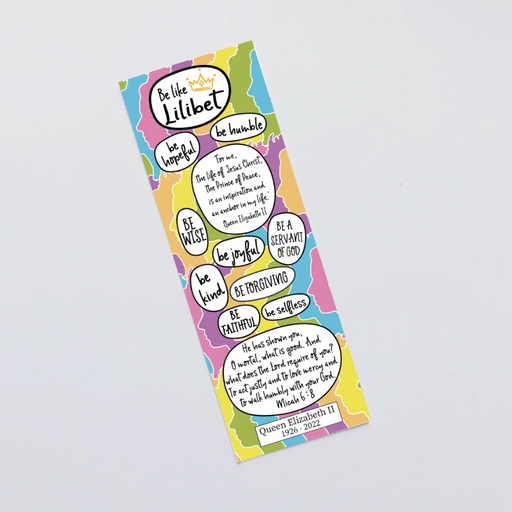 Be like
Lilibet
be humble
be
hopeful
For me,
the life of Jesus Christ,
the Prince of Peace,
is an inspiration and
an anchor in my life.
Queen Elizabeth II
BE
WISE
BE A
SERVANT
OF GOD
be joyful
be
kind
BE FORGIVING
BE
FAITHFUL
be selfless
He has shown you,
O mortal, what is good. And
what does the Lord require of you?
To act justly and to love mercy and
to walk humbly with your God.
Micah 6:8
Queen Elizabeth II
1926 - 2022